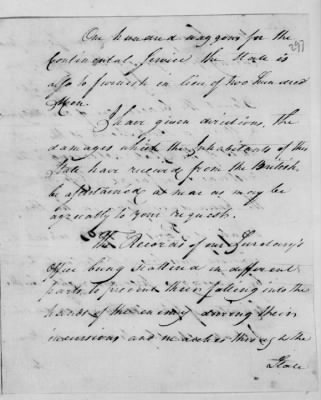 One hundred waggons for the
297
Continental Service the State is
also to furnish in lieu of two hundred
Men.
I have given directions, the
damages which the Inhabitants of this
State have received from the British
be ascertained as near as may be
agreeably to your request.
The Records of our Secretary's
Office being scattered in different
parts to prevent their falling into the
hands of the enemy during their
incursions and marches through the
State